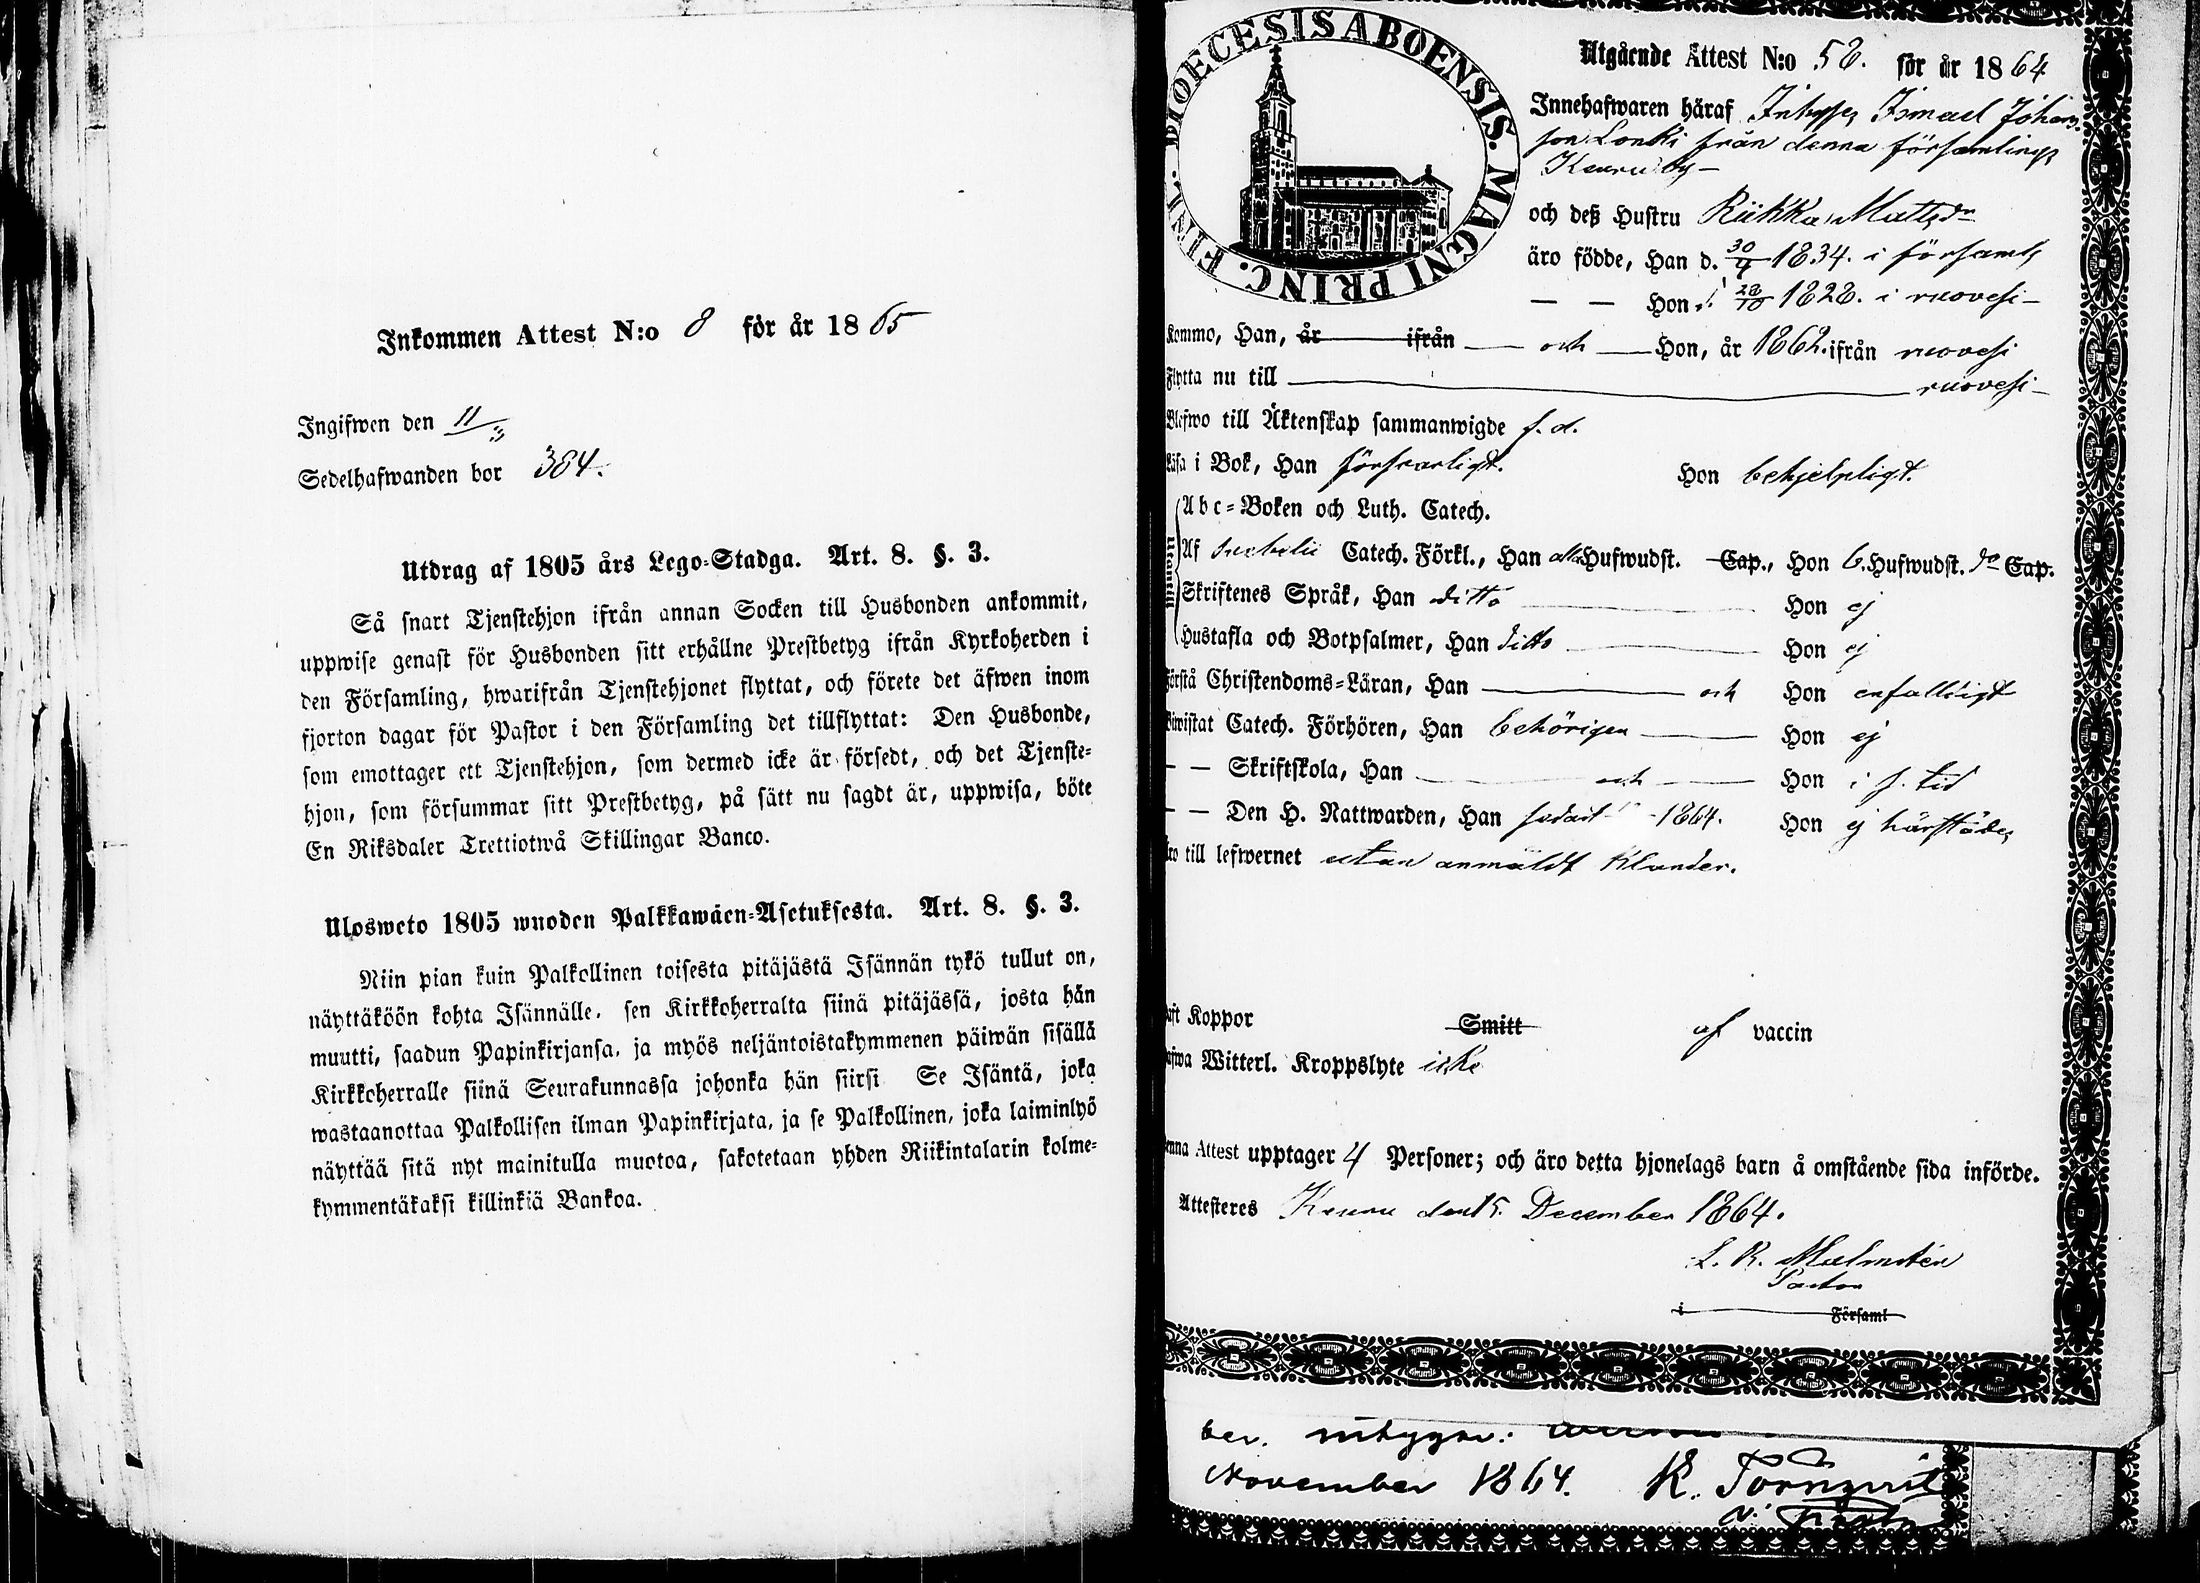 Inkommen Attest N:o 8 för år 1865
Ingifwen den 11/3
Sedelhafwanden bor 384.
Utdrag af 1805 års Lego-Stadga. Art. 8. §. 3.
Så snart Tjenstehjon ifrån annan Socken till Husbonden ankommit,
uppwise genast för Husbonden sitt erhållne Prestbetyg ifrån Kyrkoherden i
den Församling, hwarifrån Tjenstehjonet flyttat, och förete det äfwen inom
fjorton dagar för Pastor i den Församling det tillflyttat: Den Husbonde,
som emottager ett Tjenstehjon, som dermed icke är försedt, och det Tjenste-
hjon, som försummar sitt Prestbetyg, på sätt nu sagdt är, uppwisa, böte
En Riksdaler Trettiotwå Skillingar Banco.
Ulosweto 1805 wuoden Palkkawäen-Asetuksesta. Art. 8. §. 3.
Niin pian kuin Palkollinen toisesta pitäjästä Isännän tykö tullut on,
näyttäköön kohta Isännälle, sen Kirkkoherralta siinä pitäjässä, josta hän
muutti, saadun Papinkirjansa, ja myös neljäntoistakymmenen päiwän sisällä
Kirkkoherralle siinä Seurakunnassa johonka hän siirsi Se Isäntä, joka
wastaanottaa Palkollisen ilman Papinkirjata, ja se Palkollinen, joka laiminlyö
näyttää sitä nyt mainitulla muotoa, sakotetaan yhden Riikintalarin kolme-
kymmentäkaksi killinkiä Bankoa.
DIOECESIS ABOENSIS. MAGNI PRINC. FINL.
Utgående Attest N:o 58. för år 1864
Innehafwaren häraf Inhyses Ismael Johans
son Lonki från denna församlings
Keuru by —
och deß Hustru Riikka Mattsdr
äro födde, Han d. 30/9 1834. i församl
— — Hon d. 28/10 1828. i ruovesi —
Kommo, Han, år ifrån — och — Hon, år 1862. ifrån ruovesi
Flytta nu till ruovesi —
Blefwo till Äktenskap sammanwigde f. d.
Läsa i Bok, Han försvarligt. Hon behjelpligt.
Abc-Boken och Luth. Catech.
Utantill
Af Svebelii Catech. Förkl., Han alla Hufwudst. Cap., Hon 6. Hufwudst. do Cap.
Skriftenes Språk, Han ditto Hon ej
Hustafla och Botpsalmer, Han ditto Hon ej
Förstå Christendoms-Läran, Han — och Hon enfaldigt
Biwistat Catech. Förhören, Han behörigen — Hon ej
— — Skriftskola, Han — och — Hon i s. tid
— — Den H. Nattwarden, Han sedast 1864. Hon ej härstädes
Äro till lefwernet utan anmäldt klander.
Haft Koppor Smitt af vaccin
Hafwa Witterl. Kroppslyte icke
Denna Attest upptager 4 Personer; och äro detta hjonelags barn å omstående sida införde.
Attesteres Keuru den 15. December 1864.
L. R. Malmstén
Pastor
i Församl
November 1864. K. Törnqvist